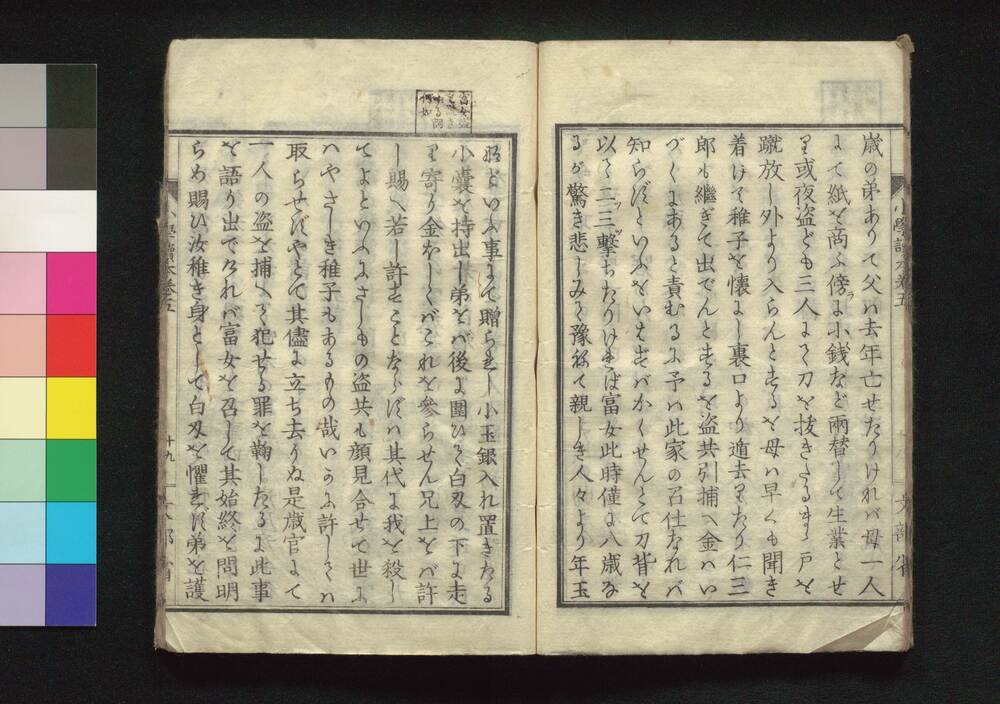 歳の弟ありて父ハ去年亡せたりけれバ母一人
にて紙を商ふ傍に小銭など両替して生業とせ
り或夜盗ども三人にて刀を抜きたるまゝ戸を
蹴放し外より入らんとするを母ハ早くも聞き
着けて稚子を懐にし裏口より遁去りたり仁三
郎も継ぎて出でんとするを盗共引捕へ金ハい
づくにあると責むるに予ハ此家の召仕なれバ
知らずといふをいはずバかくせんとて刀背を
以て二三撃ちたりけれバ富女此時僅に八歳な
るが驚き悲しみて豫ねて親しき人々より年玉
小學讀本巻五
文部省
富女盗を欺きたる問何如
などいふ事にて贈られし小玉銀入れ置きたる
小嚢を持出し弟をバ後に圍ひて白刄の下に走
り寄り金ほしくバこれを參らせん兄上をバ許
し賜へ若し許すことならずハ其代に我を殺し
てよといふにさしもの盗共も顔見合せて世に
ハやさしき稚子もあるもの哉いかに許してハ
取らせずやとて其儘に立ち去りぬ是歳官にて
一人の盗を捕へて犯せる罪を鞫したるに此事
を語り出でけれバ富女を召して其始終を問明
らめ賜ひ汝稚き身として白刄を懼れず弟を護
小學讀本巻五
十九
文部省